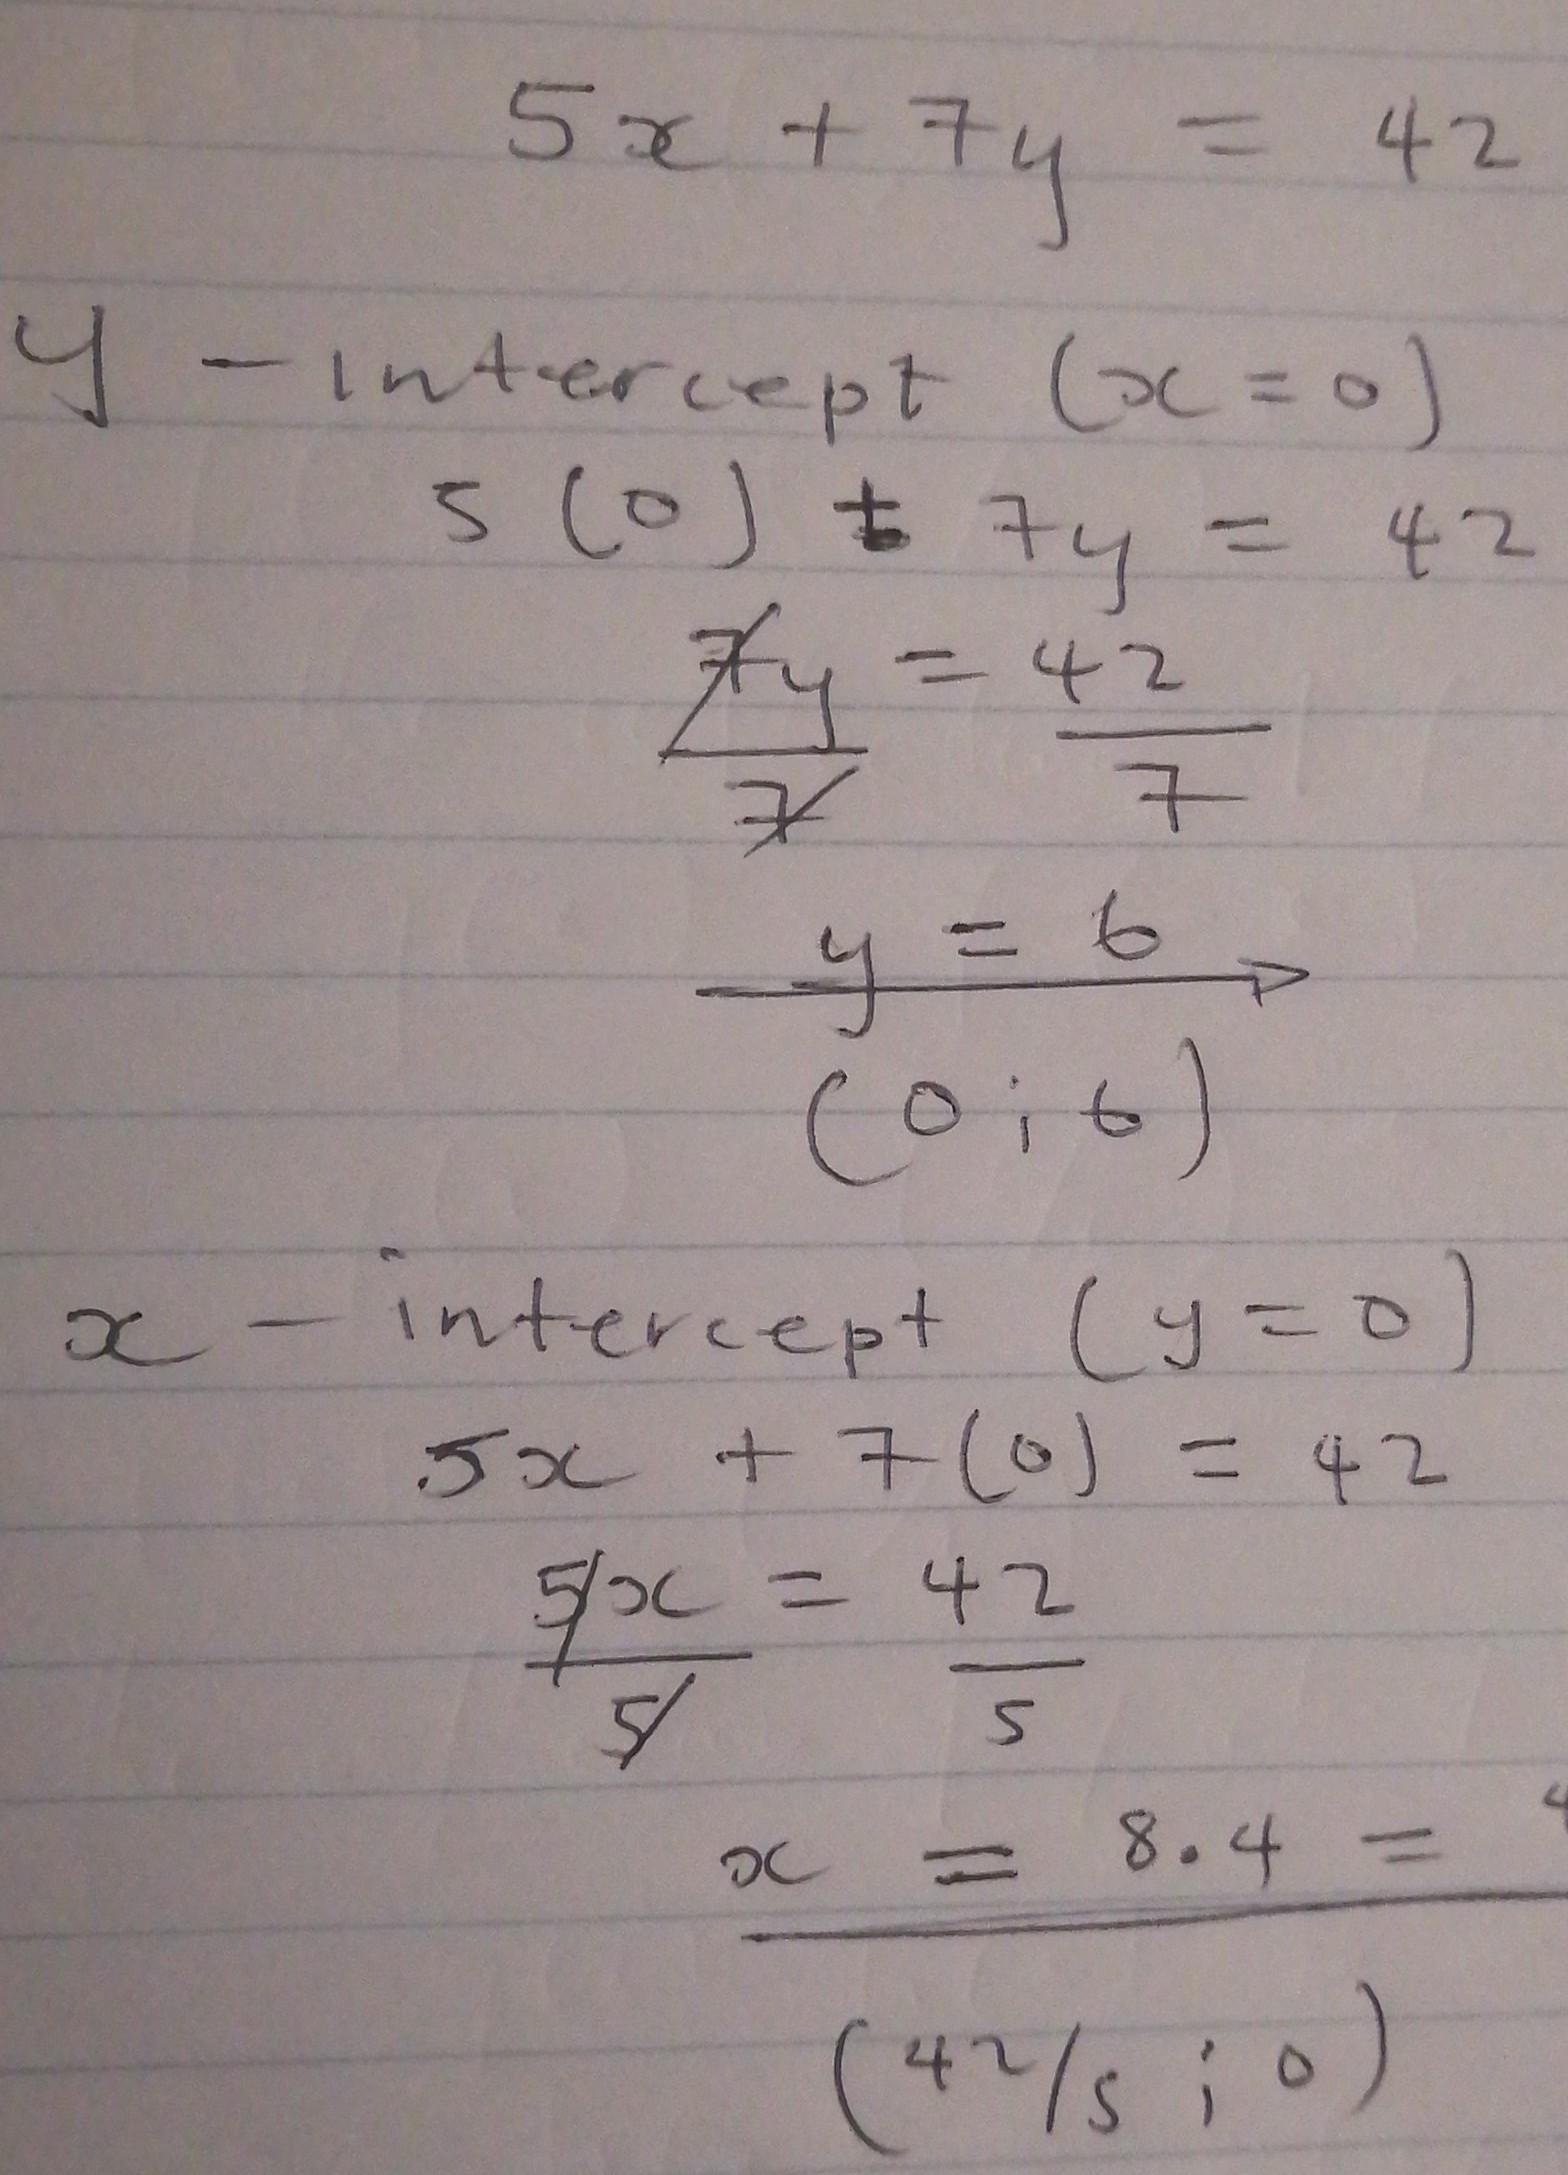 5x + 7y = 42
y - intercept (x = 0)
5 (0) + 7y = 42
7y = 42
7 7
y = 6
(0 ; 6)
x - intercept (y = 0)
5x + 7 (0) = 42
5x = 42
5 5
x = 8.4 =
(42/5 ; 0)